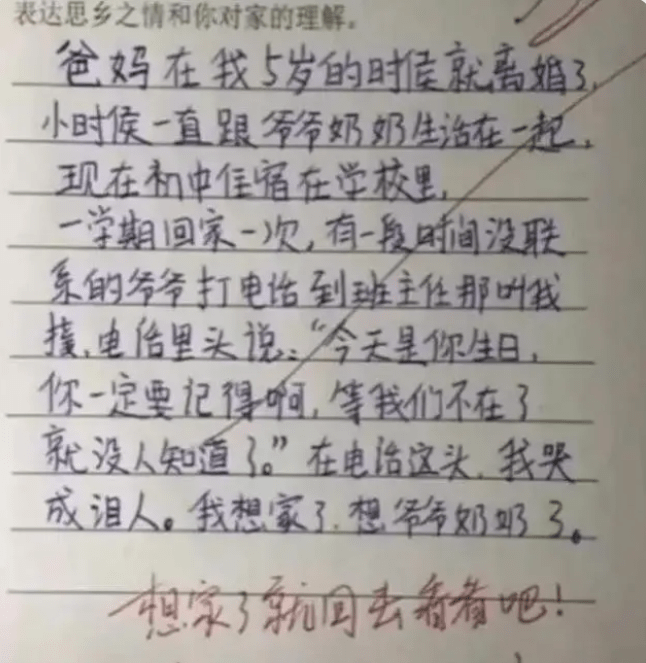 表达思乡之情和你对家的理解。
爸妈在我5岁的时侯就离婚了,
小时侯一直跟爷爷奶奶生活在一起,
现在初中住宿在学校里,
一学期回家一次,有一段时间没联
系的爷爷打电话到班主任那叫我
接,电话里头说:“今天是你生日,
你一定要记得啊,等我们不在了
就没人知道了。”在电话这头,我哭
成泪人。我想家了,想爷爷奶奶了。
想家了就回去看看吧!